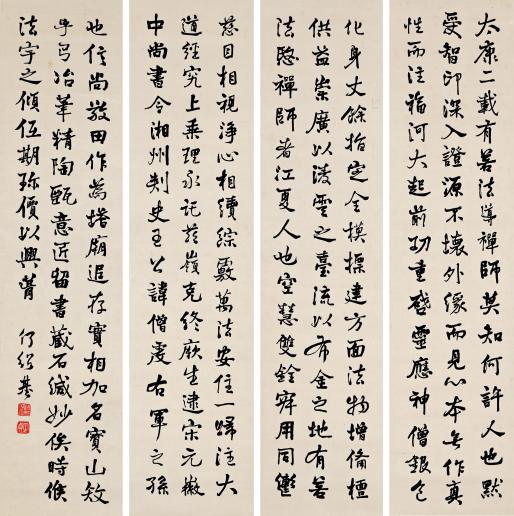 太康二載有若法導禪師莫知何許人也默
受智印深入證源不壞外緣而見心本無作真
性而注福河大起前功重啓靈應神僧銀色
化身丈餘指定全模標建方面法物增備檀
供益崇廣以凌雲之臺流以布金之地有若
法愍禪師者江夏人也空慧雙銓寂用同轡
慈目相視淨心相續綜覈萬法安住一歸注大
道經究上乘理永託茲嶺克終厥生逮宋元徽
中尚書令湘州刺史王公諱僧虔右軍之孫
也信尚敬田作為塔廟追存寶相加名寶山矧
乎弓冶筆精陶甄意匠留書藏石緘妙俟時候
法宇之傾低期珍價以興葺 何紹基